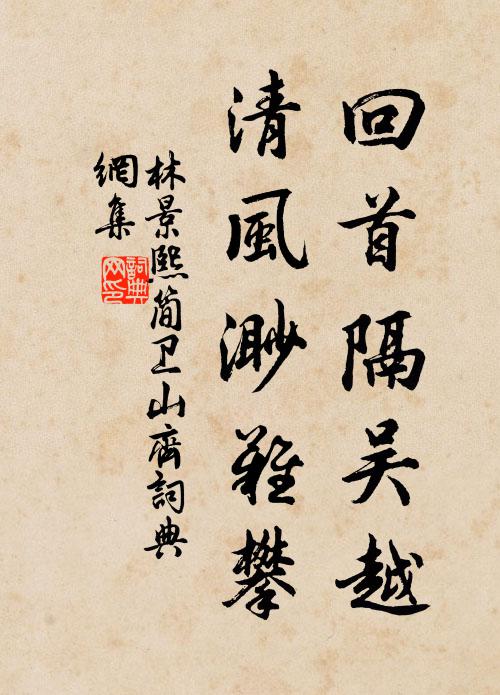 回首隔吴越
清風渺難攀
林景熙简卫山齊詞典
網集
詞典
网印